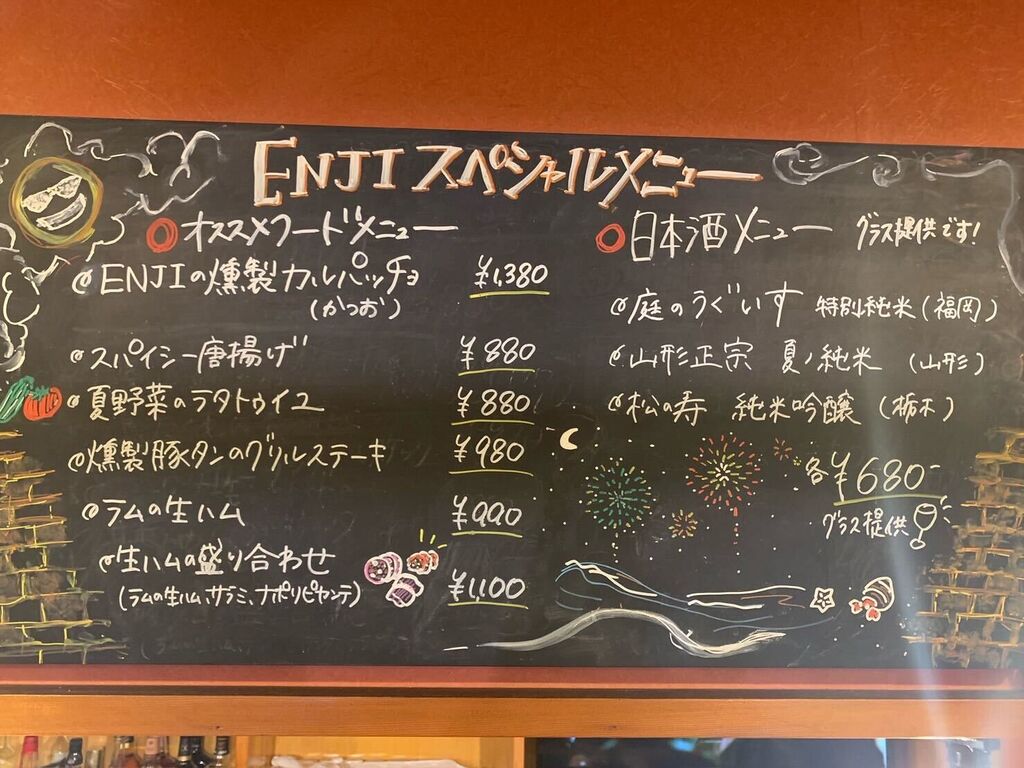 ENJI スペシャルメニュー
オススメフードメニュー
ENJIの燻製カルパッチョ ¥1,380
(かつお)
スパイシー唐揚げ ¥880
夏野菜のラタトゥイユ ¥880
燻製豚タンのグリルステーキ ¥980
ラムの生ハム ¥990
生ハムの盛り合わせ
(ラムの生ハム、サラミ、ナポリピヤンテ) ¥1,100
日本酒メニュー グラス提供です!
庭のうぐいす 特別純米(福岡)
山形正宗 夏ノ純米 (山形)
松の寿 純米吟醸 (栃木)
各¥680-
グラス提供